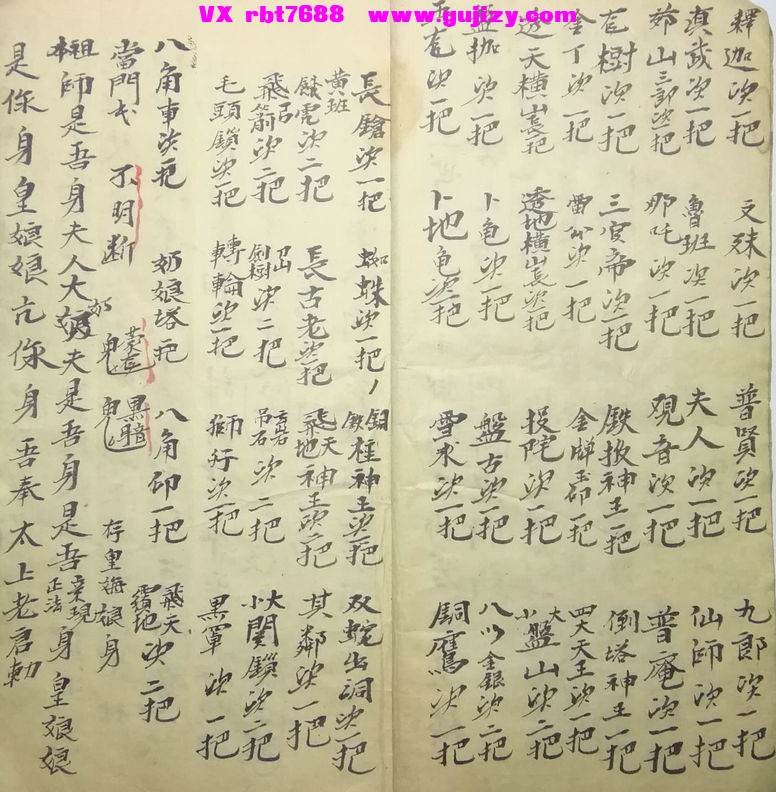 VX rbt7688 www.gujizy.com
釋迦決一把 文殊決一把 普賢決一把 九郎決一把
真武決一把 魯班決一把 夫人決一把 仙師決一把
茆山三郎決一把 那吒決一把 觀音決一把 普庵決一把
樹決一把 三官帝決一把 鉄扳神王一把 倒塔神王一把
金丁決一把 雷公決一把 金牌玉印一把 四大天王決一把
天横山長決一把 透地横山長決一把 投陀決一把 大小盤山決二把
盤拋決一把 卜龟決一把 盤古決一把 八卦金銀決二把
決一把 卜地龟決一把 雪氷決一把 銅鷹決一把
長鎗決一把 蜘蛛決一把 銅鉄柱神王決一把 双蛇出洞決一把
黄班餓虎決二把 長古老決一把 飛天飛地神王決二把 其鄰決一把
飛石飛箭決二把 刀山劍樹決二把 吊石決二把 大小関鎖決二把
毛頭鎖決一把 轉輪決一把 獅行決一把 黑罩決一把
八角車決一把 奶娘塔一把 八角印一把 飛天決二把
當門 不明断 鬼 黑暗 鬼 存皇 娘身
祖本師是吾身夫人大奶夫是吾身是吾正法 現身皇娘娘
是你身皇娘娘元你身 吾奉太上老君勅